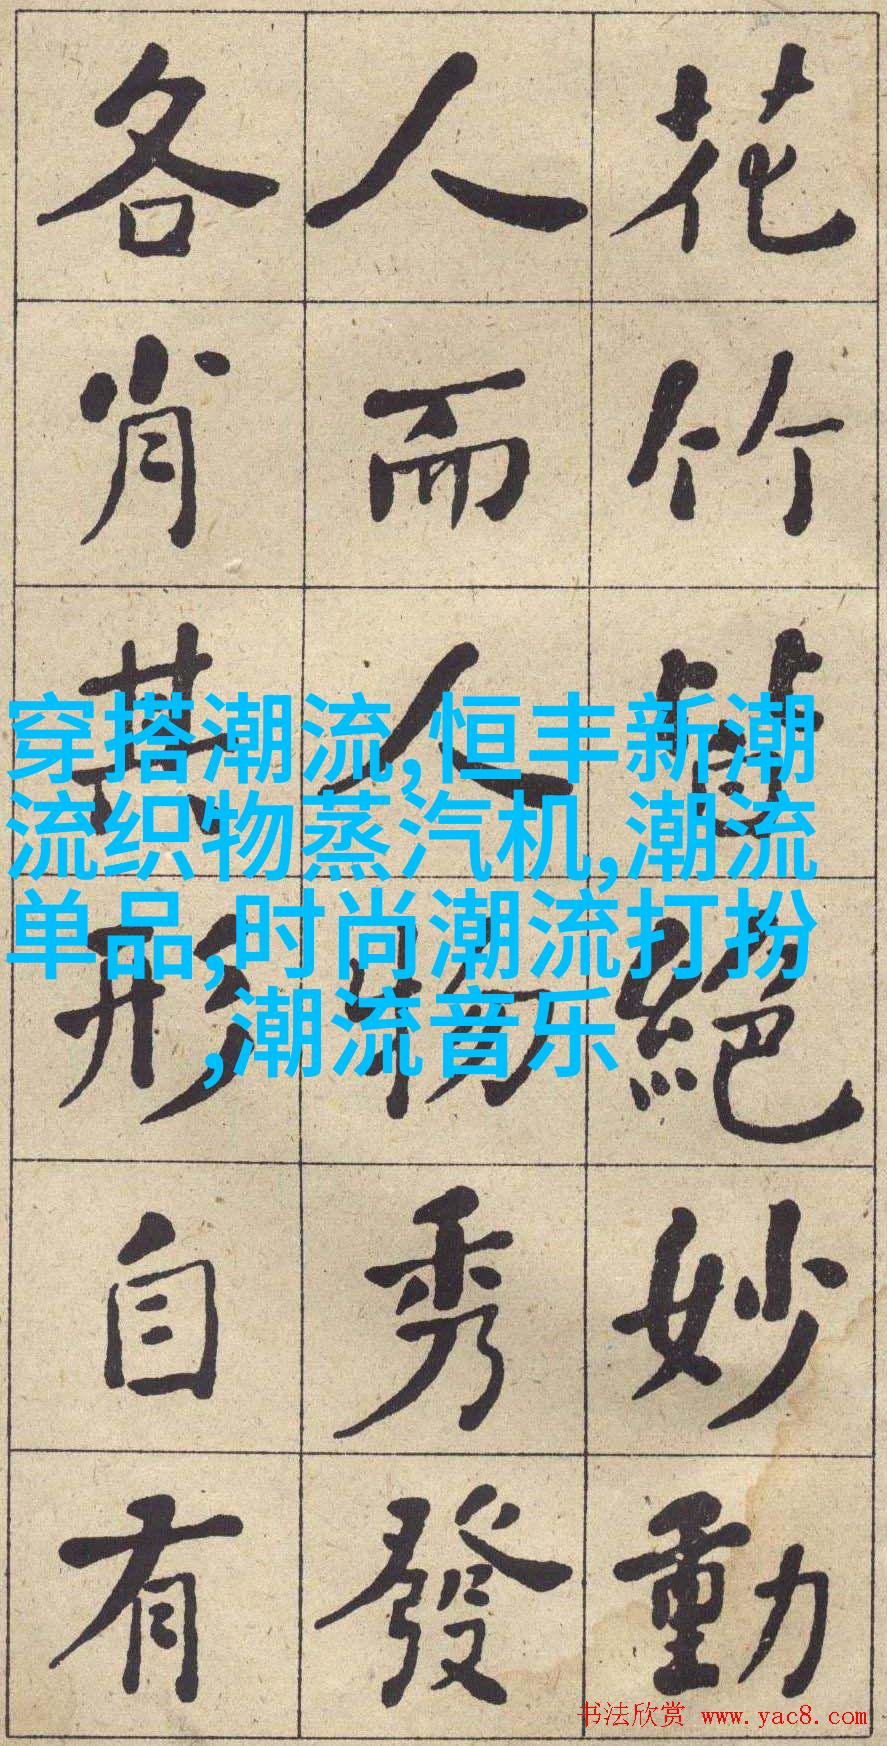 花竹皆絕妙動
人而人物秀發
各肖其形自有
穿搭潮流,恒丰新潮
流织物蒸汽机,潮流
单品,时尚潮流打扮
,潮流音乐
书法欣赏 www.yac8.com